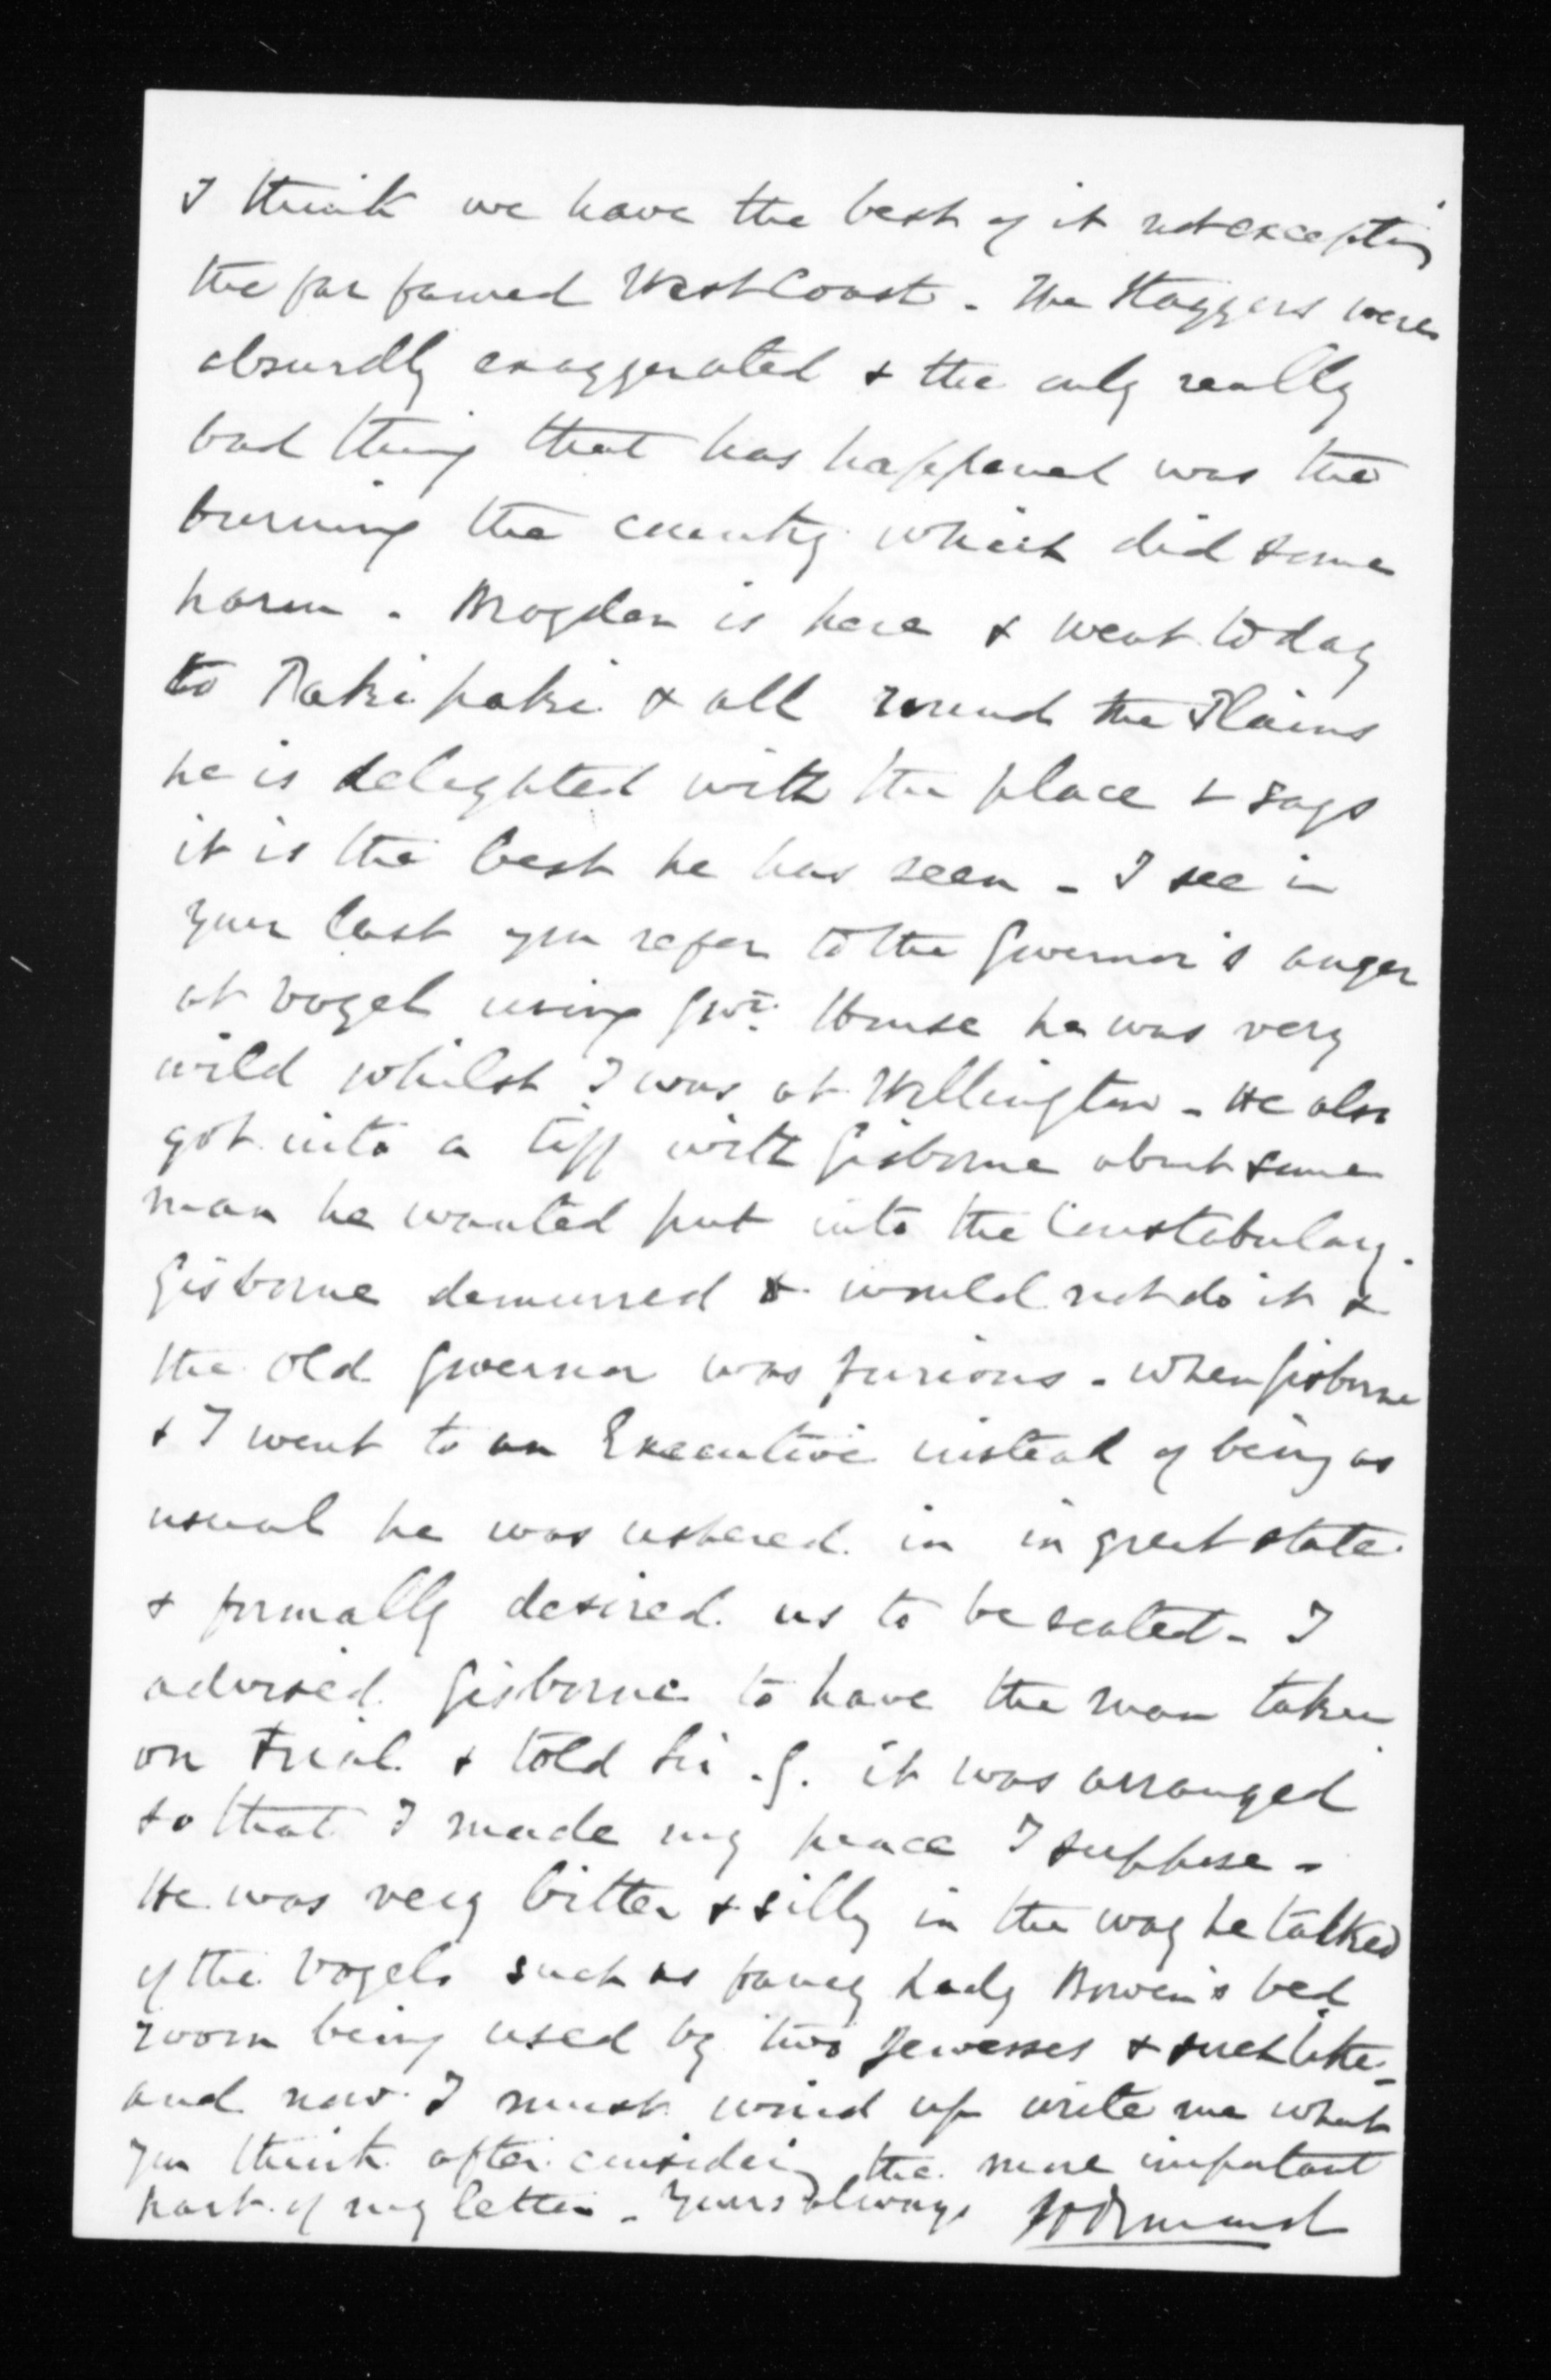 I think we have the best of it not excepting
the far famed West Coast - The Staggers were
absurdly exaggerated & the only really
bad thing that has happened was the
burning the country which did some
harm - Brogden is here & went today
to Pakipaki & all round the Plains
he is delighted with the place & says
it is the best he has seen - I see in
your last you refer to the Governor's anger
at Vogel using Govt. House he was very
wild whilst I was at Wellington - He also
got into a tiff with Gisborne about some
man he wanted put into the Constabulary.
Gisborne demurred & would not do it &
the old Governor was furious - When Gisborne
& I went to an Executive instead of being as
usual he was ushered in in great state
& formally desired us to be seated - I
advised Gisborne to have the man taken
on trial & told Sir G. it was arranged
so that I made my peace I suppose -
He was very bitter & silly in the way he talked
of the Vogels such as fancy Lady Bowen's bed
room being used by two Jewesses & such like -
and now I must wind up write me what
you think after considering the more important
part of my letter - Yours always JDOrmond